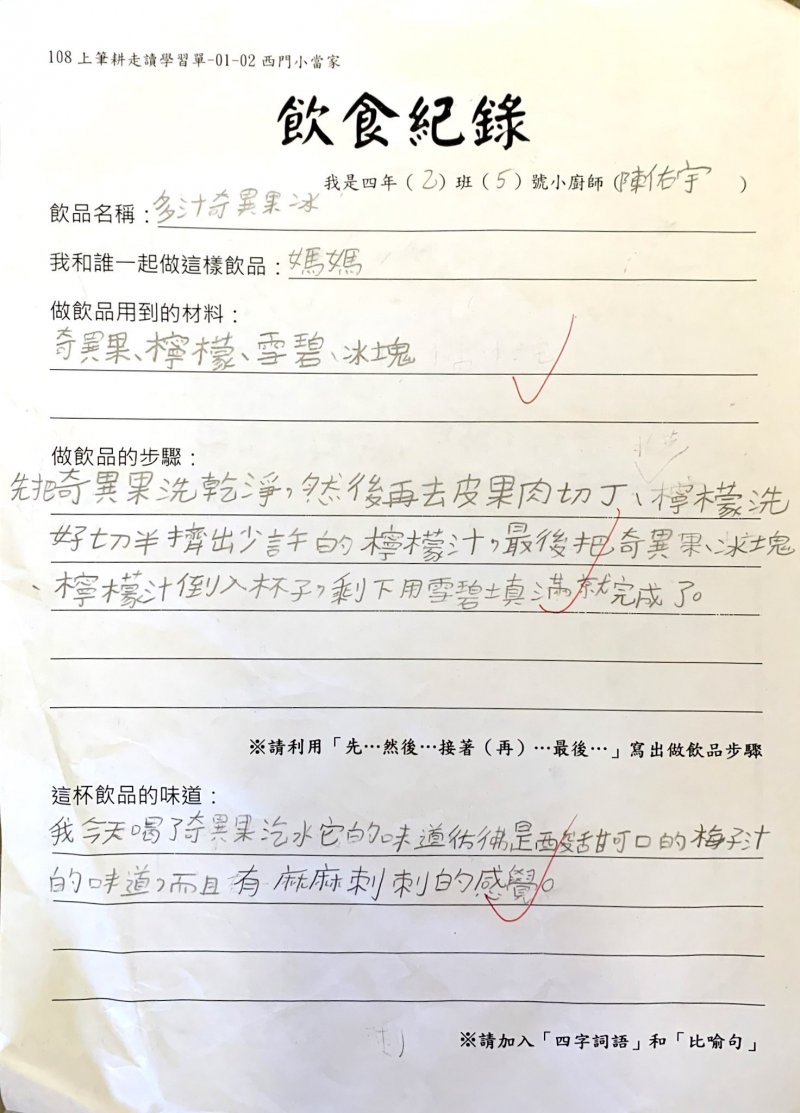 108上筆耕走讀學習單-01-02西門小當家
飲食紀錄
我是四年(2)班(5)號小廚師(陳佑宇)
飲品名稱：多汁奇異果冰
我和誰一起做這樣飲品：媽媽
做飲品用到的材料：
奇異果、檸檬、雪碧、冰塊
做飲品的步驟：
先把奇異果洗乾淨，然後再去皮果肉切丁、檸檬洗
好切半擠出少許的檸檬汁，最後把奇異果、冰塊
、檸檬汁倒入杯子，剩下用雪碧填滿就完成了。
※請利用「先…然後…接著（再）…最後…」寫出做飲品步驟
這杯飲品的味道：
我今天喝了奇異果汽水它的味道彷彿是酸甜可口的梅子汁
的味道，而且有麻麻刺刺的感覺。
※請加入「四字詞語」和「比喻句」